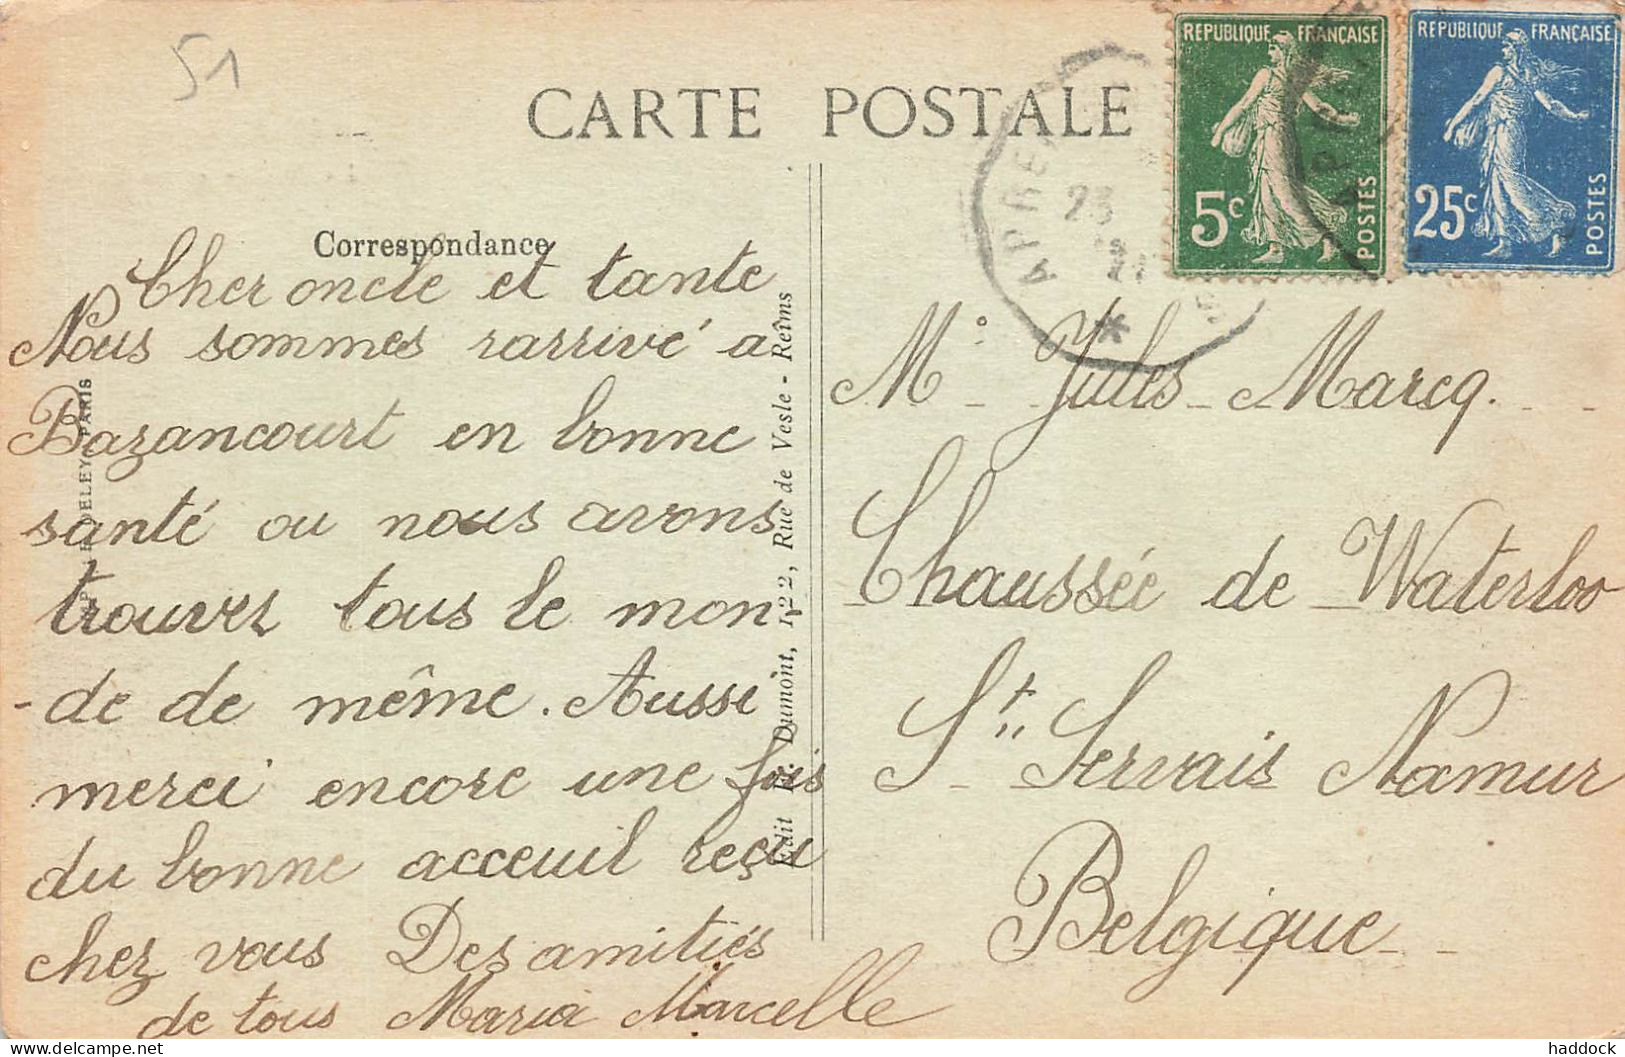 51
CARTE POSTALE
REPUBLIQUE FRANÇAISE
5c
POSTES
REPUBLIQUE FRANÇAISE
25c
POSTES
23
Correspondance
Cher oncle et tante
Nous sommes rarrivé a
Bazancourt en bonne
santé ou nous avons
trouvez tous le mon-
-de de même. Aussi
merci encore une fois
du bonne acceuil reçu
chez vous Des amitiés
de tous Maria Marcelle
DELEY, PARIS
Edit. Dumont, 122, Rue de Vesle - Reims
Mr Jules Marcq.
Chaussée de Waterloo
St. Servais Namur
Belgique
haddock